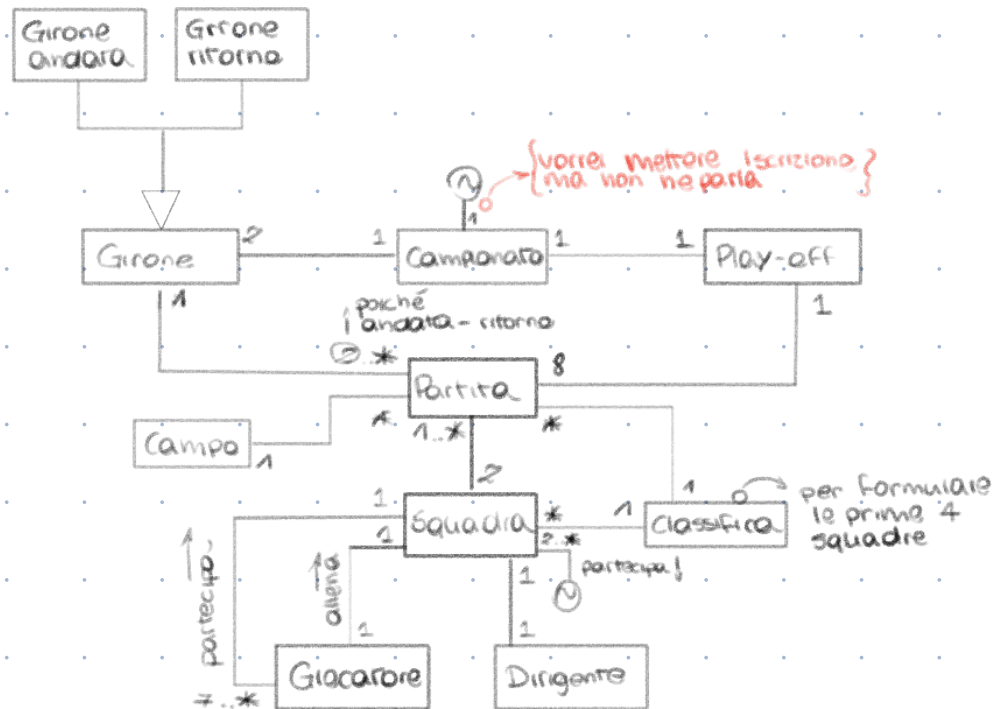 Girone
andata
Girone
ritorno
{vorrei mettere iscrizione}
ma non ne parla
N
1
Girone
2
1
Campionato
1
1
Play-off
1
1
poiché
andata - ritorno
2..*
Partita
8
Campo
1
*
1..*
*
2
1
Squadra
1
*
1
1
Classifica
per formulare
le prime 4
squadre
2..*
partecipa
N
partecipa
allena
1
1
1
Giocatore
7..*
Dirigente